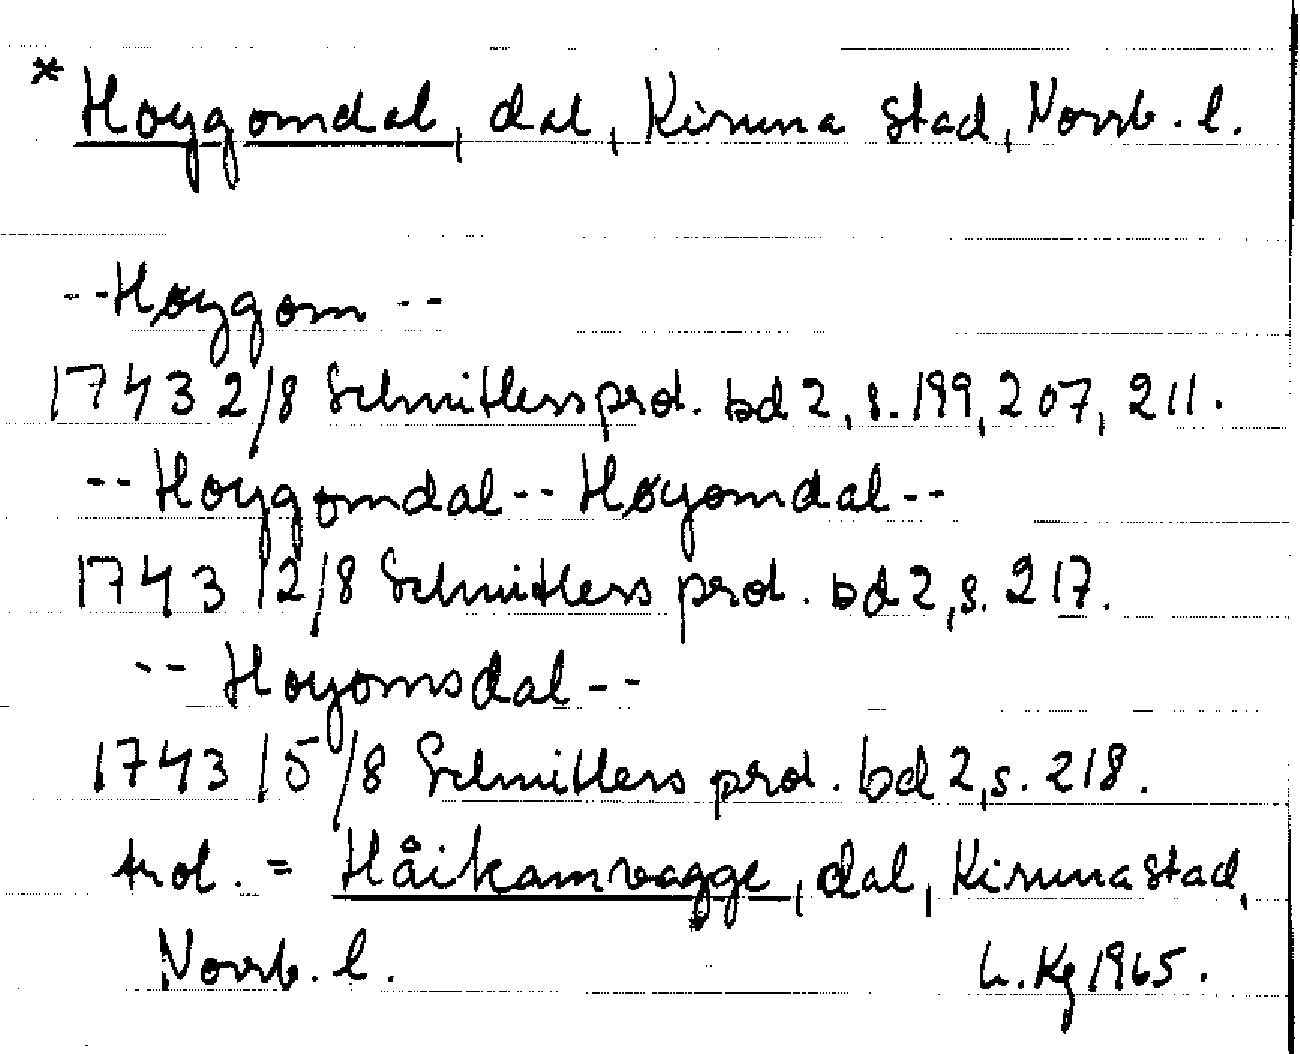 * Hoygomdal, dal, Kiruna stad, Norrb. l.
-- Høygom --
1743 2/8 Schnitlers prot. bd 2, s. 199, 207, 211.
-- Hoygomdal -- Høyomdal --
1743 12/8 Schnitlers prot. bd 2, s. 217.
-- Hoyomsdal --
1743 15/8 Schnitlers prot. bd 2, s. 218.
trol. = Håikamvagge, dal, Kiruna stad,
Norrb. l. L. Kg 1965.